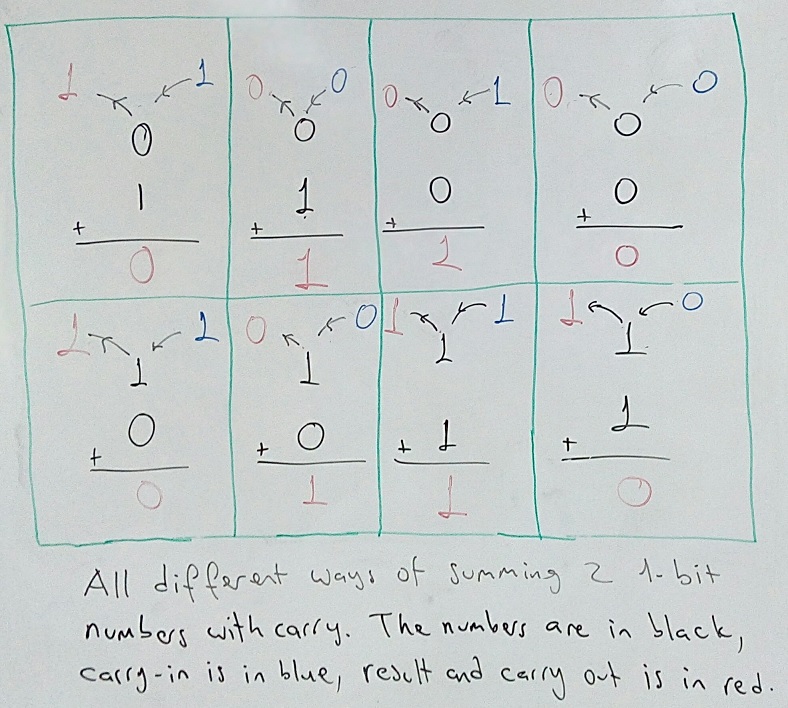 1 1 0 0 0 1 0 0
0 0 0 0
1 1 0 0
+ + + +
0 1 1 0
1 1 0 0 1 1 1 0
1 1 1 1
0 0 1 1
+ + + +
0 1 1 0
All different ways of summing 2 1-bit
numbers with carry. The numbers are in black,
carry-in is in blue, result and carry out is in red.